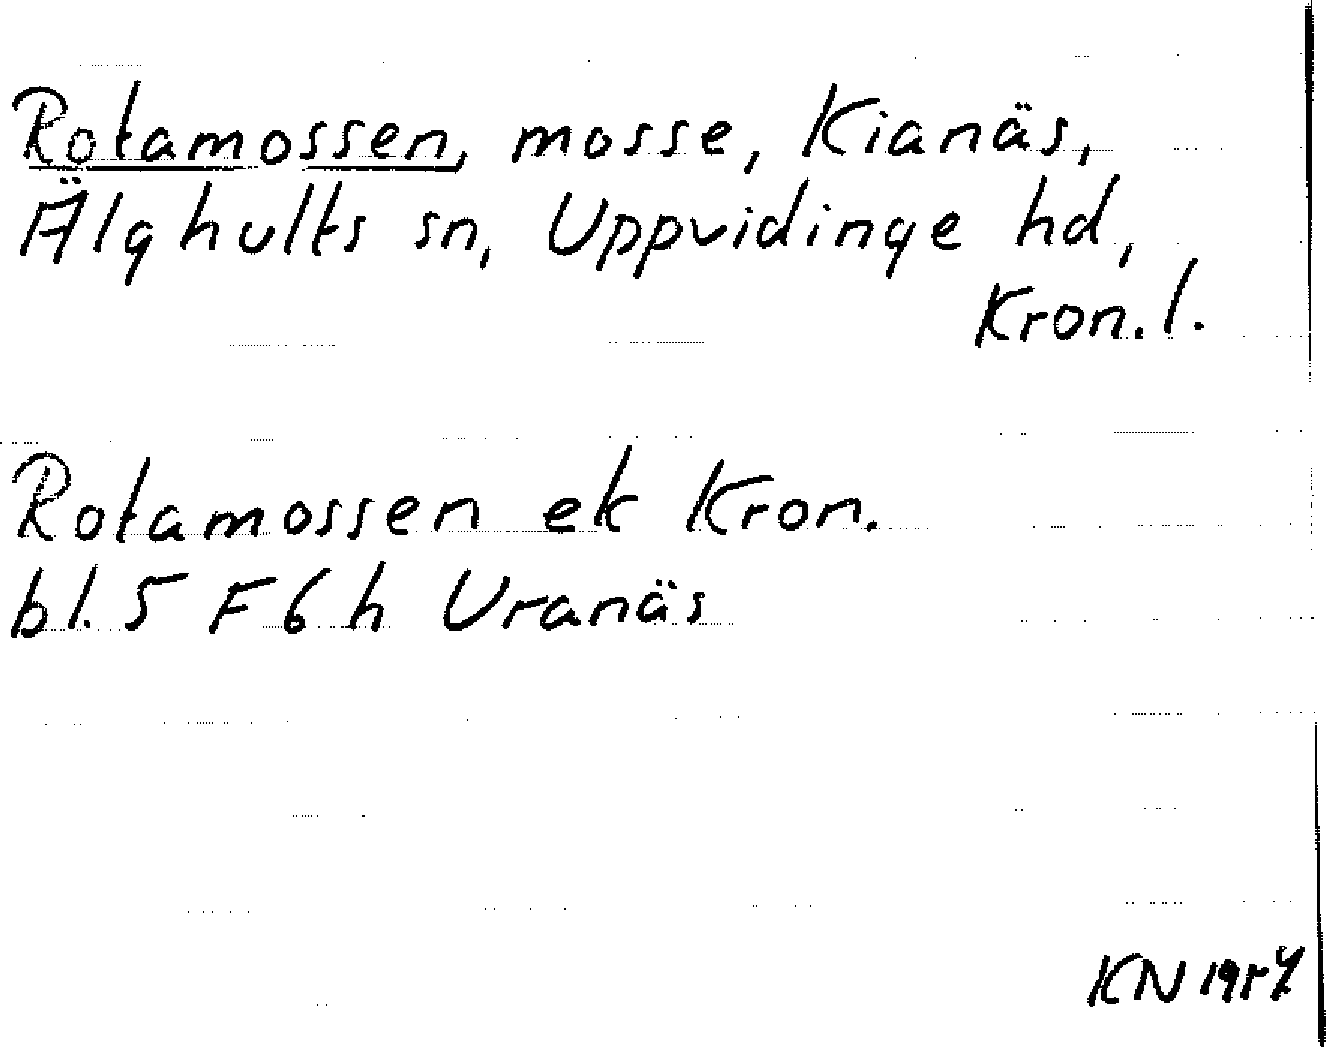 Rotamossen, mosse, Kianäs,
Älghults sn, Uppvidinge hd,
Kron. l.
Rotamossen ek Kron.
bl. 5 F 6 h Uranäs
KN 1957